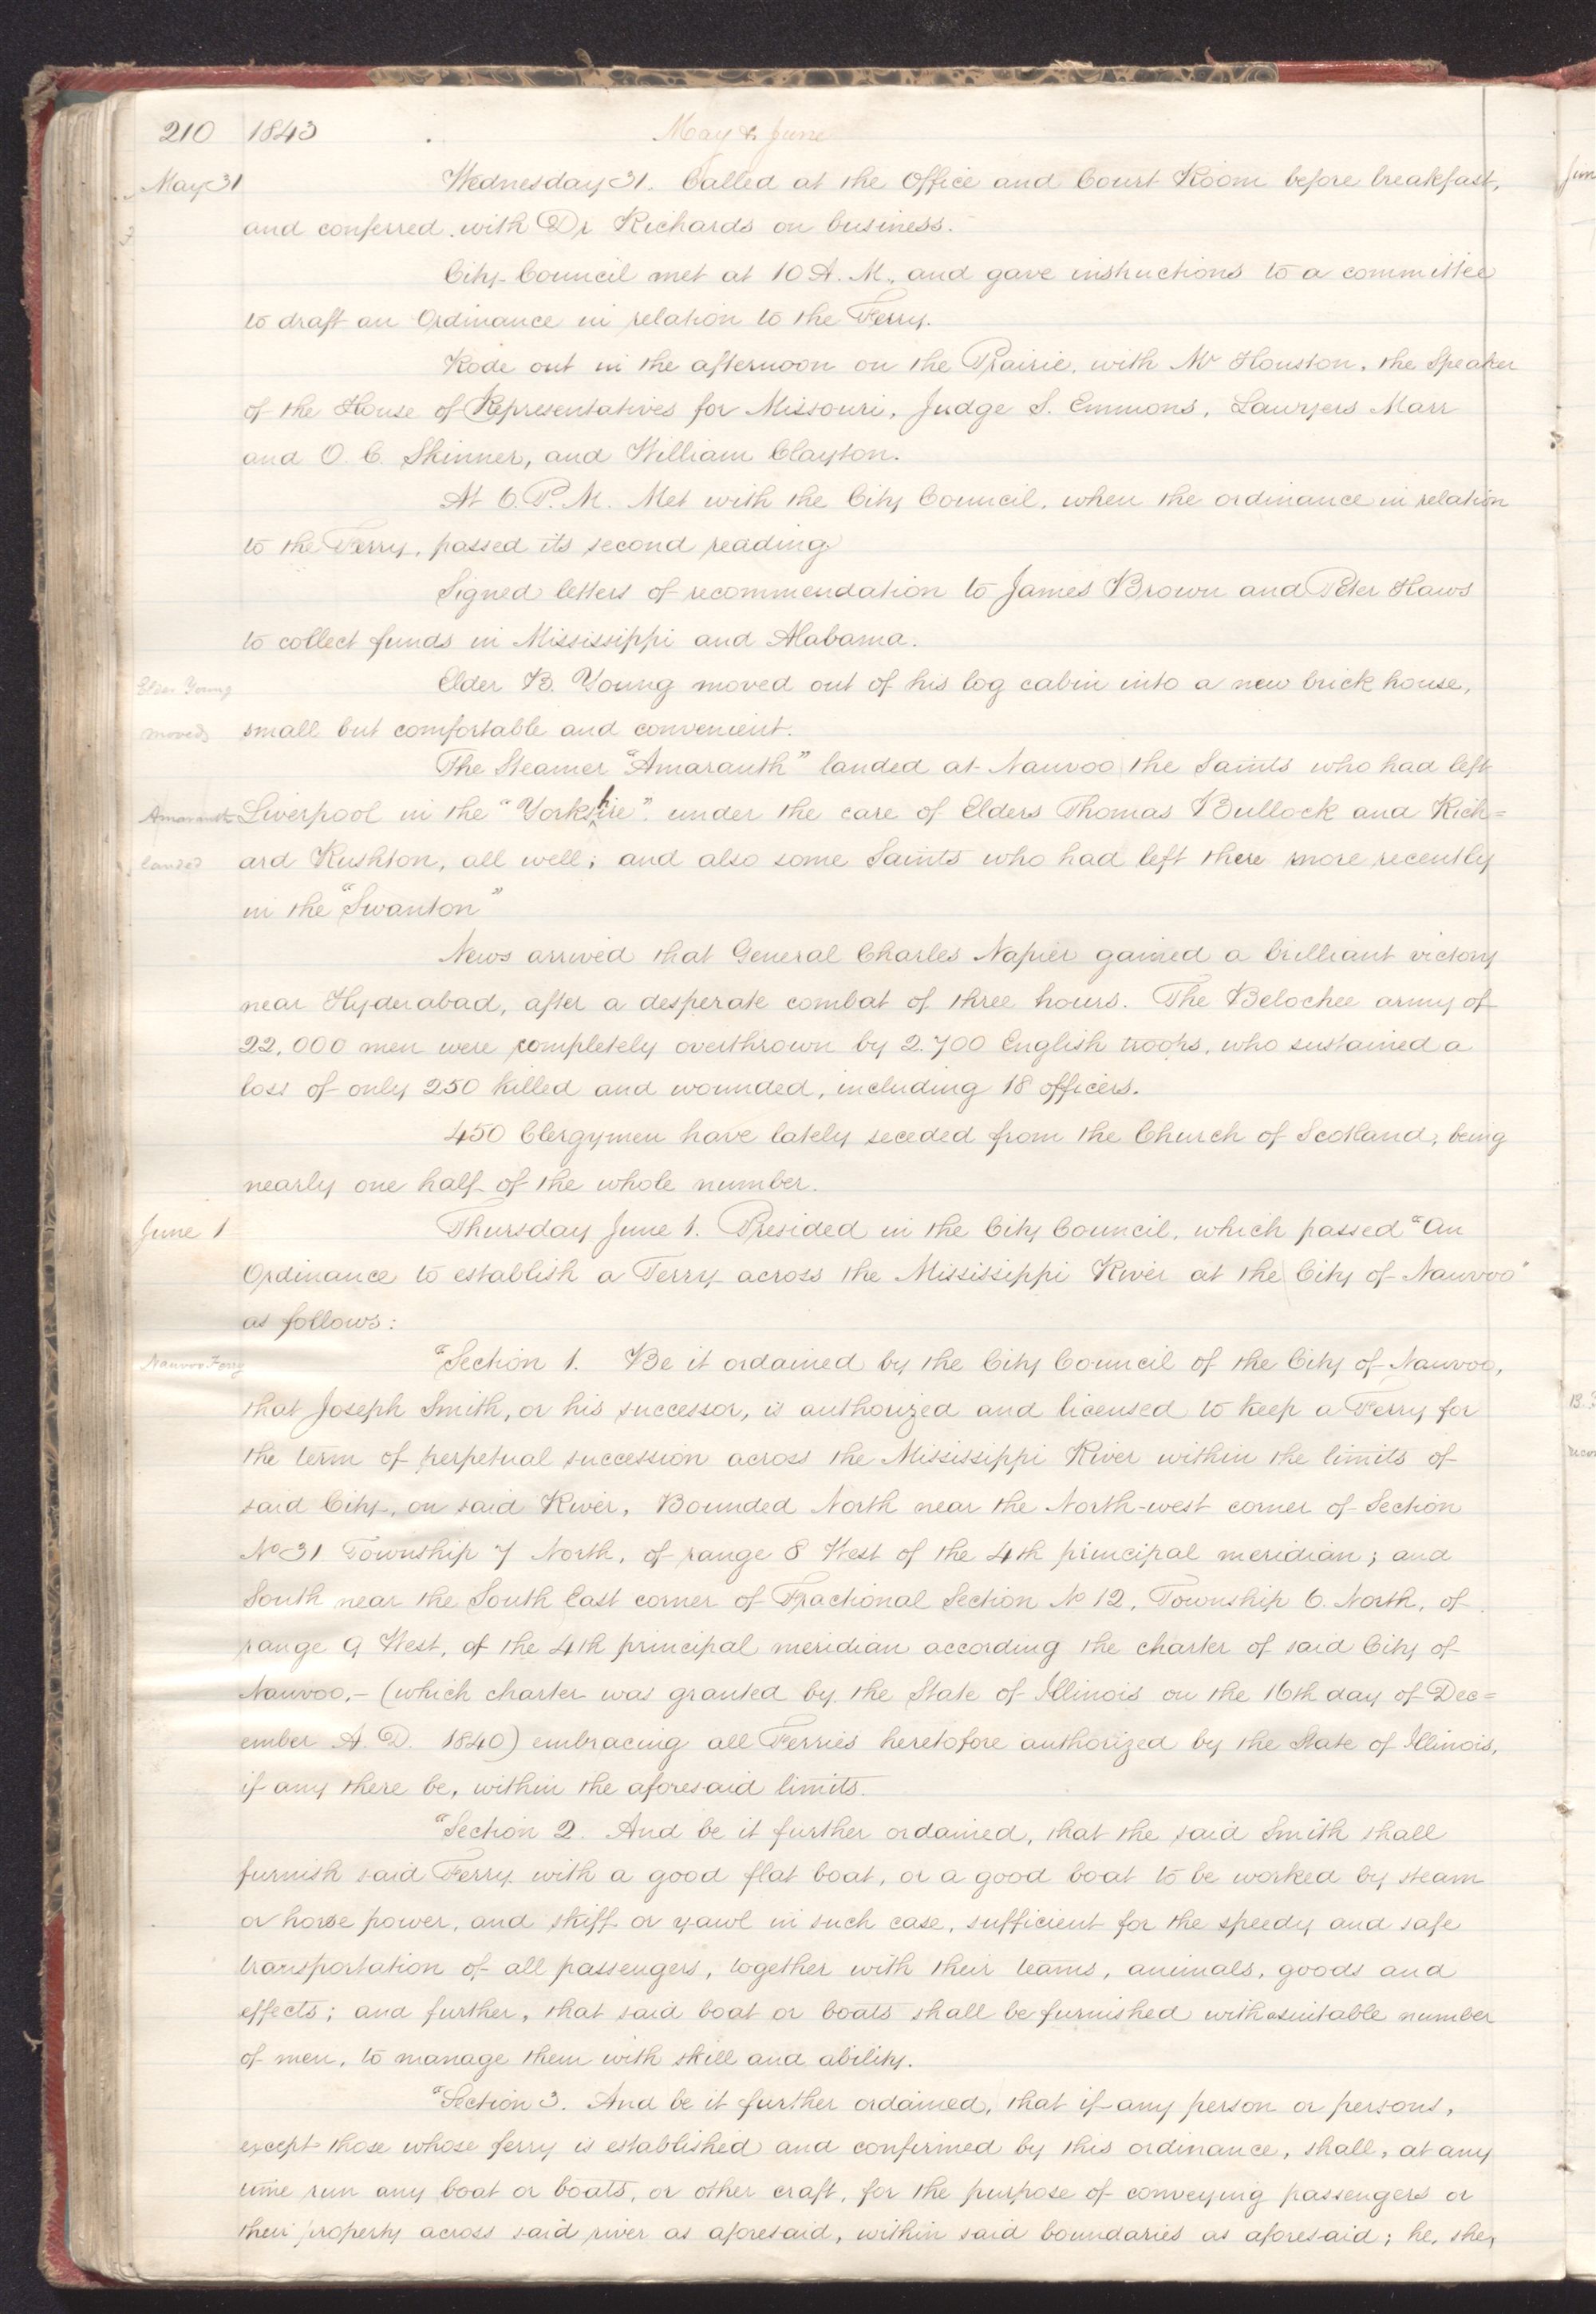 210 1843 May & June
May 31 Wednesday 31. Called at the Office and Court Room before breakfast,
and conferred with Dr Richards on business.
City Council met at 10 A. M., and gave instructions to a committee
to draft an Ordinance in relation to the Ferry.
Rode out in the afternoon on the Prairie, with Mr Houston, the Speaker
of the House of Representatives for Missouri, Judge S. Emmons, Lawyers Marr
and O. C. Skinner, and William Clayton.
At 6. P. M. Met with the City Council, when the ordinance in relation
to the Ferry, passed its second reading
Signed letters of recommendation to James Brown and Peter Haws
to collect funds in Mississippi and Alabama.
Elder Young Elder B. Young moved out of his log cabin into a new brick house,
moved small but comfortable and convenient.
The Steamer "Amaranth" landed at Nauvoo the Saints who had left
Amaranth Liverpool in the "Yorkshire". under the care of Elders Thomas Bullock and Rich=
landed ard Rushton, all well; and also some Saints who had left there more recently
in the "Swanton"
News arrived that General Charles Napier gained a brilliant victory
near Hyderabad, after a desperate combat of three hours. The Belochee army of
22,000 men were completely overthrown by 2.700 English troops, who sustained a
loss of only 250 killed and wounded, including 18 officers.
450 Clergymen have lately seceded from the Church of Scotland, being
nearly one half of the whole number.
June 1 Thursday June 1. Presided in the City Council, which passed "An
Ordinance to establish a Ferry across the Mississippi River at the City of Nauvoo"
as follows:
Nauvoo Ferry "Section 1. Be it ordained by the City Council of the City of Nauvoo,
that Joseph Smith, or his successor, is authorized and licensed to keep a Ferry for
the term of perpetual succession across the Mississippi River within the limits of
said City, on said River, Bounded North near the North-west corner of Section
No 31 Township 7 North, of range 8 West of the 4th principal meridian; and
South near the South East corner of Fractional Section No 12, Township 6. North, of
range 9 West, of the 4th principal meridian according the charter of said City of
Nauvoo,- (which charter was granted by the State of Illinois on the 16th day of Dec=
ember A. D. 1840) embracing all Ferries heretofore authorized by the State of Illinois,
if any there be, within the aforesaid limits.
"Section 2. And be it further ordained, that the said Smith shall
furnish said Ferry with a good flat boat, or a good boat to be worked by steam
or horse power, and skiff or yawl in such case, sufficient for the speedy and safe
transportation of all passengers, together with their teams, animals, goods and
effects; and further, that said boat or boats shall be furnished with a suitable number
of men, to manage them with skill and ability.
"Section 3. And be it further ordained, that if any person or persons,
except those whose ferry is established and confirmed by this ordinance, shall, at any
time run any boat or boats, or other craft, for the purpose of conveying passengers or
their property across said river as aforesaid, within said boundaries as aforesaid; he, she,